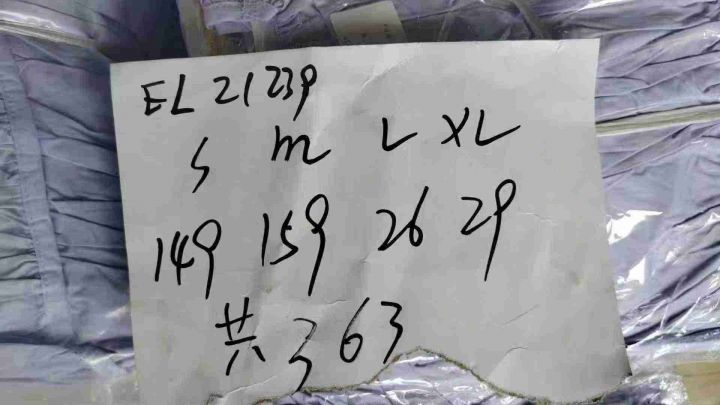 EL 21239
S M L XL
149 159 26 29
共 363